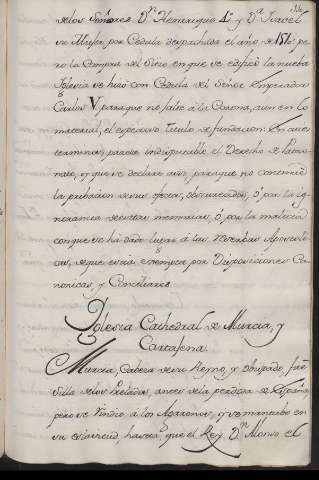 de los Señores Dn. Henrrique 4º y Dª Isavel
su Muger por Cedula despachada el año de 15 pe
ro la Compra del Sitio en que se edificó la nueba
Iglesia se hizo con Cedula del Señor Emperador
Carlos V para que no falte à la Corona, aun en lo
material, el expresivo titulo de fundacion: En cuios
terminos, parece indisputable el Derecho de Patro-
nato, y que se declare assi, para que no continue
la pribacion de sus efectos, obscurecidos, ó por la ig-
norancia de estas memorias, ó por la malicia
con que se há dado lugar á las Reserbas Apostoli-
cas, de que está exempta por Disposiciones Ca-
nonicas, y Conciliares
Iglesia Cathedral de Murcia, y
Cartagena.
Murcia, Cabeza de su Reyno, y Obispado, fue
Silla de los Prelados, antes de la perdida de España
pero se rindio à los Agarenos, y se mantubo en
su esclavitud, hasta que el Rey Dn. Alonso el